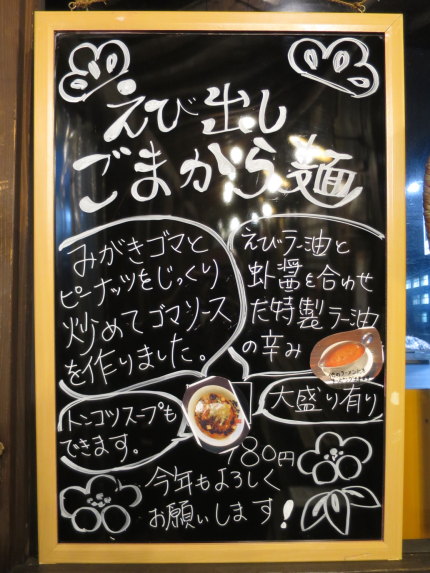 えび出し
ごまから麺
みがきゴマと
ピーナッツをじっくり
炒めてゴマソース
を作りました。
えびラー油と
蝦醤を合わせ
た特製ラー油
の辛み
トンコツスープも
できます。
大盛り有り
780円
今年もよろしく
お願いします!